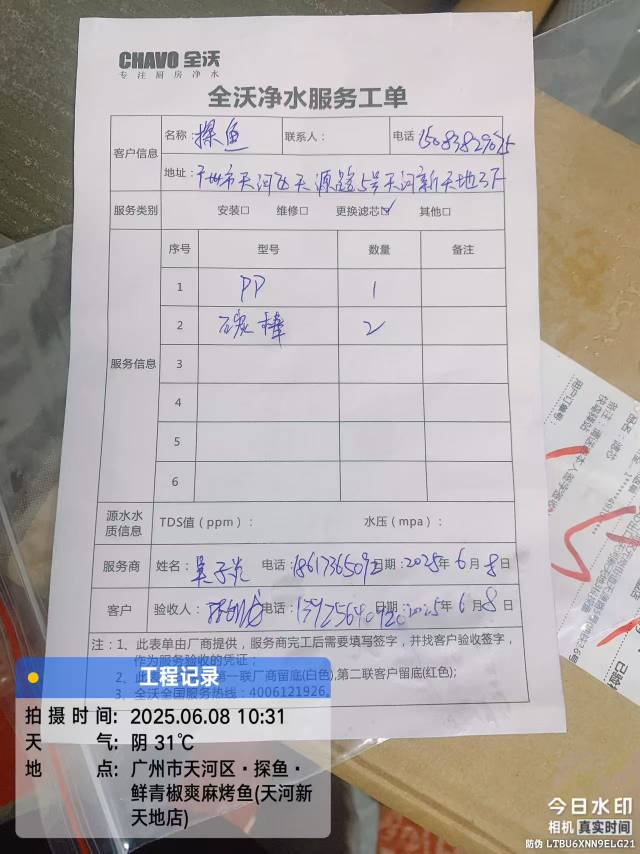 CHAVO 全沃
专注厨房净水
全沃净水服务工单
客户信息
名称: 探鱼 联系人: 电话
地址: 广州市天河区天源路5号天河新天地3F
服务类别 安装□ 维修□ 更换滤芯☑ 其他□
服务信息
序号 型号 数量 备注
1 PP 1
2 碳棒 2
3
4
5
6
源水水质信息 TDS值(ppm): 水压(mpa):
服务商 姓名: 电话: 日期: 2025年6月8日
客户 验收人: 电话: 日期: 2025年6月8日
注:1、此表单由厂商提供,服务商完工后需要填写签字,并找客户验收签字,
作为服务验收的凭证;
2、此 第一联厂商留底(白色),第二联客户留底(红色);
3、全沃全国服务热线:4006121926。
工程记录
拍摄时间: 2025.06.08 10:31
天气: 阴 31℃
地点: 广州市天河区·探鱼·
鲜青椒爽麻烤鱼(天河新
天地店)
今日水印
相机 真实时间
防伪 LTBU6XNN9ELG21
用户订单号: